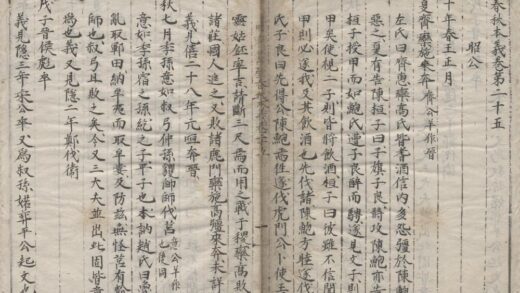 春秋本義卷第二十五
昭公
十年春王正月
夏齊欒施來奔 齊公羊作晉
左氏曰齊惠欒高氏皆耆酒信内多怨彊於陳鮑
惡之夏有告陳桓子曰子旗子良將攻陳鮑亦告
桓子授甲而如鮑氏遭子良醉而騁遂見文子則
甲矣使視二子則皆將飲酒桓子曰彼雖不信聞
甲則必逐我及其飲酒也先伐諸陳鮑方睦遂伐
氏子良曰先得公陳鮑焉往遂伐虎門公卜使王
靈姑銔率吉請斷三尺焉而用之戰于稷欒高敗
諸莊國人追之又敗諸鹿門欒施高彊來奔未詳
義見僖二十八年元咺奔晉
秋七月季孫意如叔弓仲孫貜帥師伐莒 意公羊作隱後同
意如季孫宿之孫紇之子平子也本訥趙氏曰魯
亂取鄆納牟夷而取牟婁及防茲無怪莒有
師也叔弓且敗之矣今又三大夫並出此固皆意
為也義又見隱二年鄭伐衛
戊子晉侯彪卒
義見隱三年宋公卒又為叔孫婼葬平公起文也